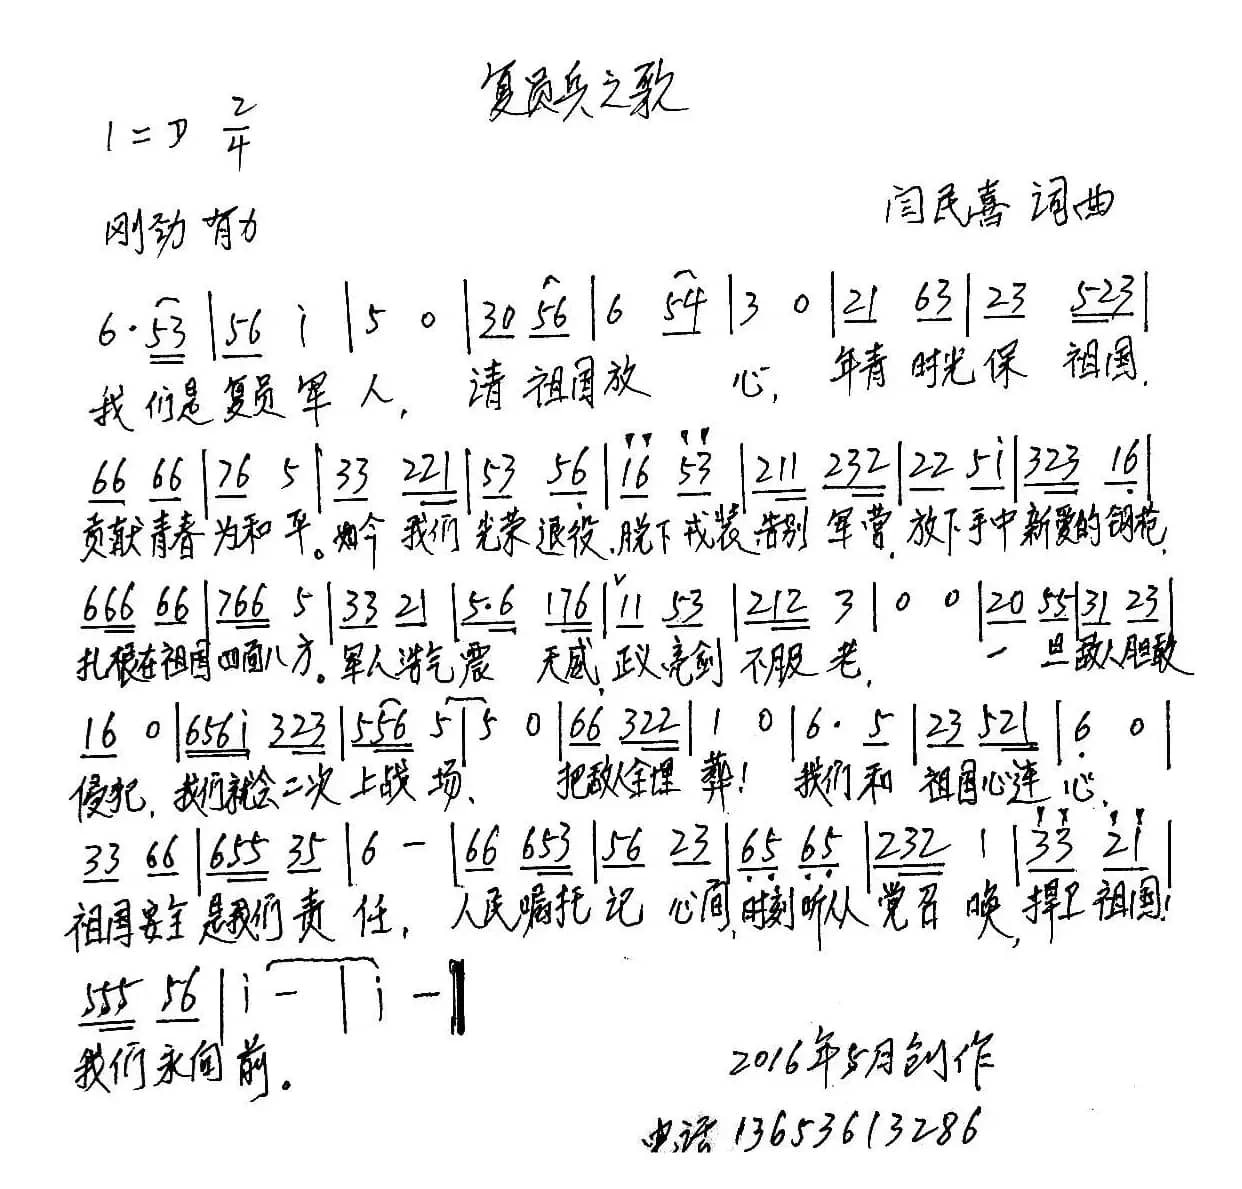 复员兵之歌
1=D 2/4
刚劲有力
闫民喜 词曲
6·53|56 i|5 0|30 56|6 54|3 0|21 63|23 523|
我们是复员军人,请祖国放心,年青时光保祖国,
66 66|76 5|33 221|53 56|16 53|211 232|22 5i|323 16|
贡献青春为和平。如今我们光荣退役,脱下戎装告别军营,放下手中新爱的钢枪,
666 66|766 5|33 21|5·6 176|11 53|212 3|0 0|20 55|31 23|
扎根在祖国四面八方。军人浩气震天威,正义亮剑不服老,一旦敌人胆敢
16 0|656i 323|556 5|5 0|66 322|1 0|6· 5|23 521|6 0|
侵犯,我们就会二次上战场、把敌人全埋葬!我们和祖国心连心,
33 66|655 35|6 -|66 653|56 23|65 65|232 1|33 21|
祖国安全是我们责任,人民嘱托记心间,时刻听从党召唤,捍卫祖国!
555 56|i -|i -‖
我们永向前。
2016年5月创作
电话13653613286